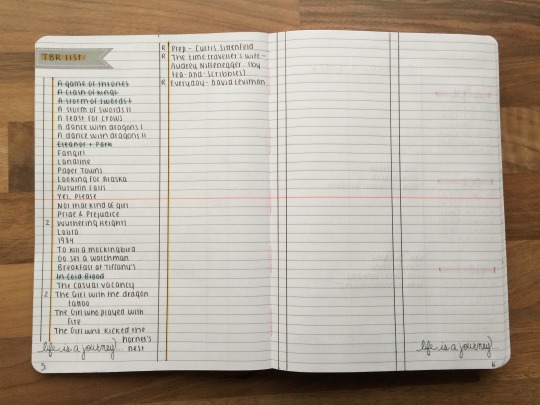 TBR LIST
A game of thrones
A clash of kings
A storm of swords I
A storm of swords II
A feast for crows
A dance with dragons I
A dance with dragons II
Eleanor + Park
Fangirl
Landline
Paper Towns
Looking for Alaska
Autumn Falls
Yes, Please
Not that kind of girl
Pride & Prejudice
2 Wuthering Heights
Lolita
1984
To kill a mockingbird
Go set a watchman
Breakfast at Tiffany's
In Cold Blood
The casual vacancy
2 The Girl with the dragon
tattoo
The Girl who played with
fire
The Girl who kicked the
hornet's
nest
life is a journey...
5
R Prep - Curtis Sittenfeld
R The time traveller's wife -
Audrey Niffenegger (by
tea-and-scribbles)
R Everyday - David Levithan
life is a journey...
6